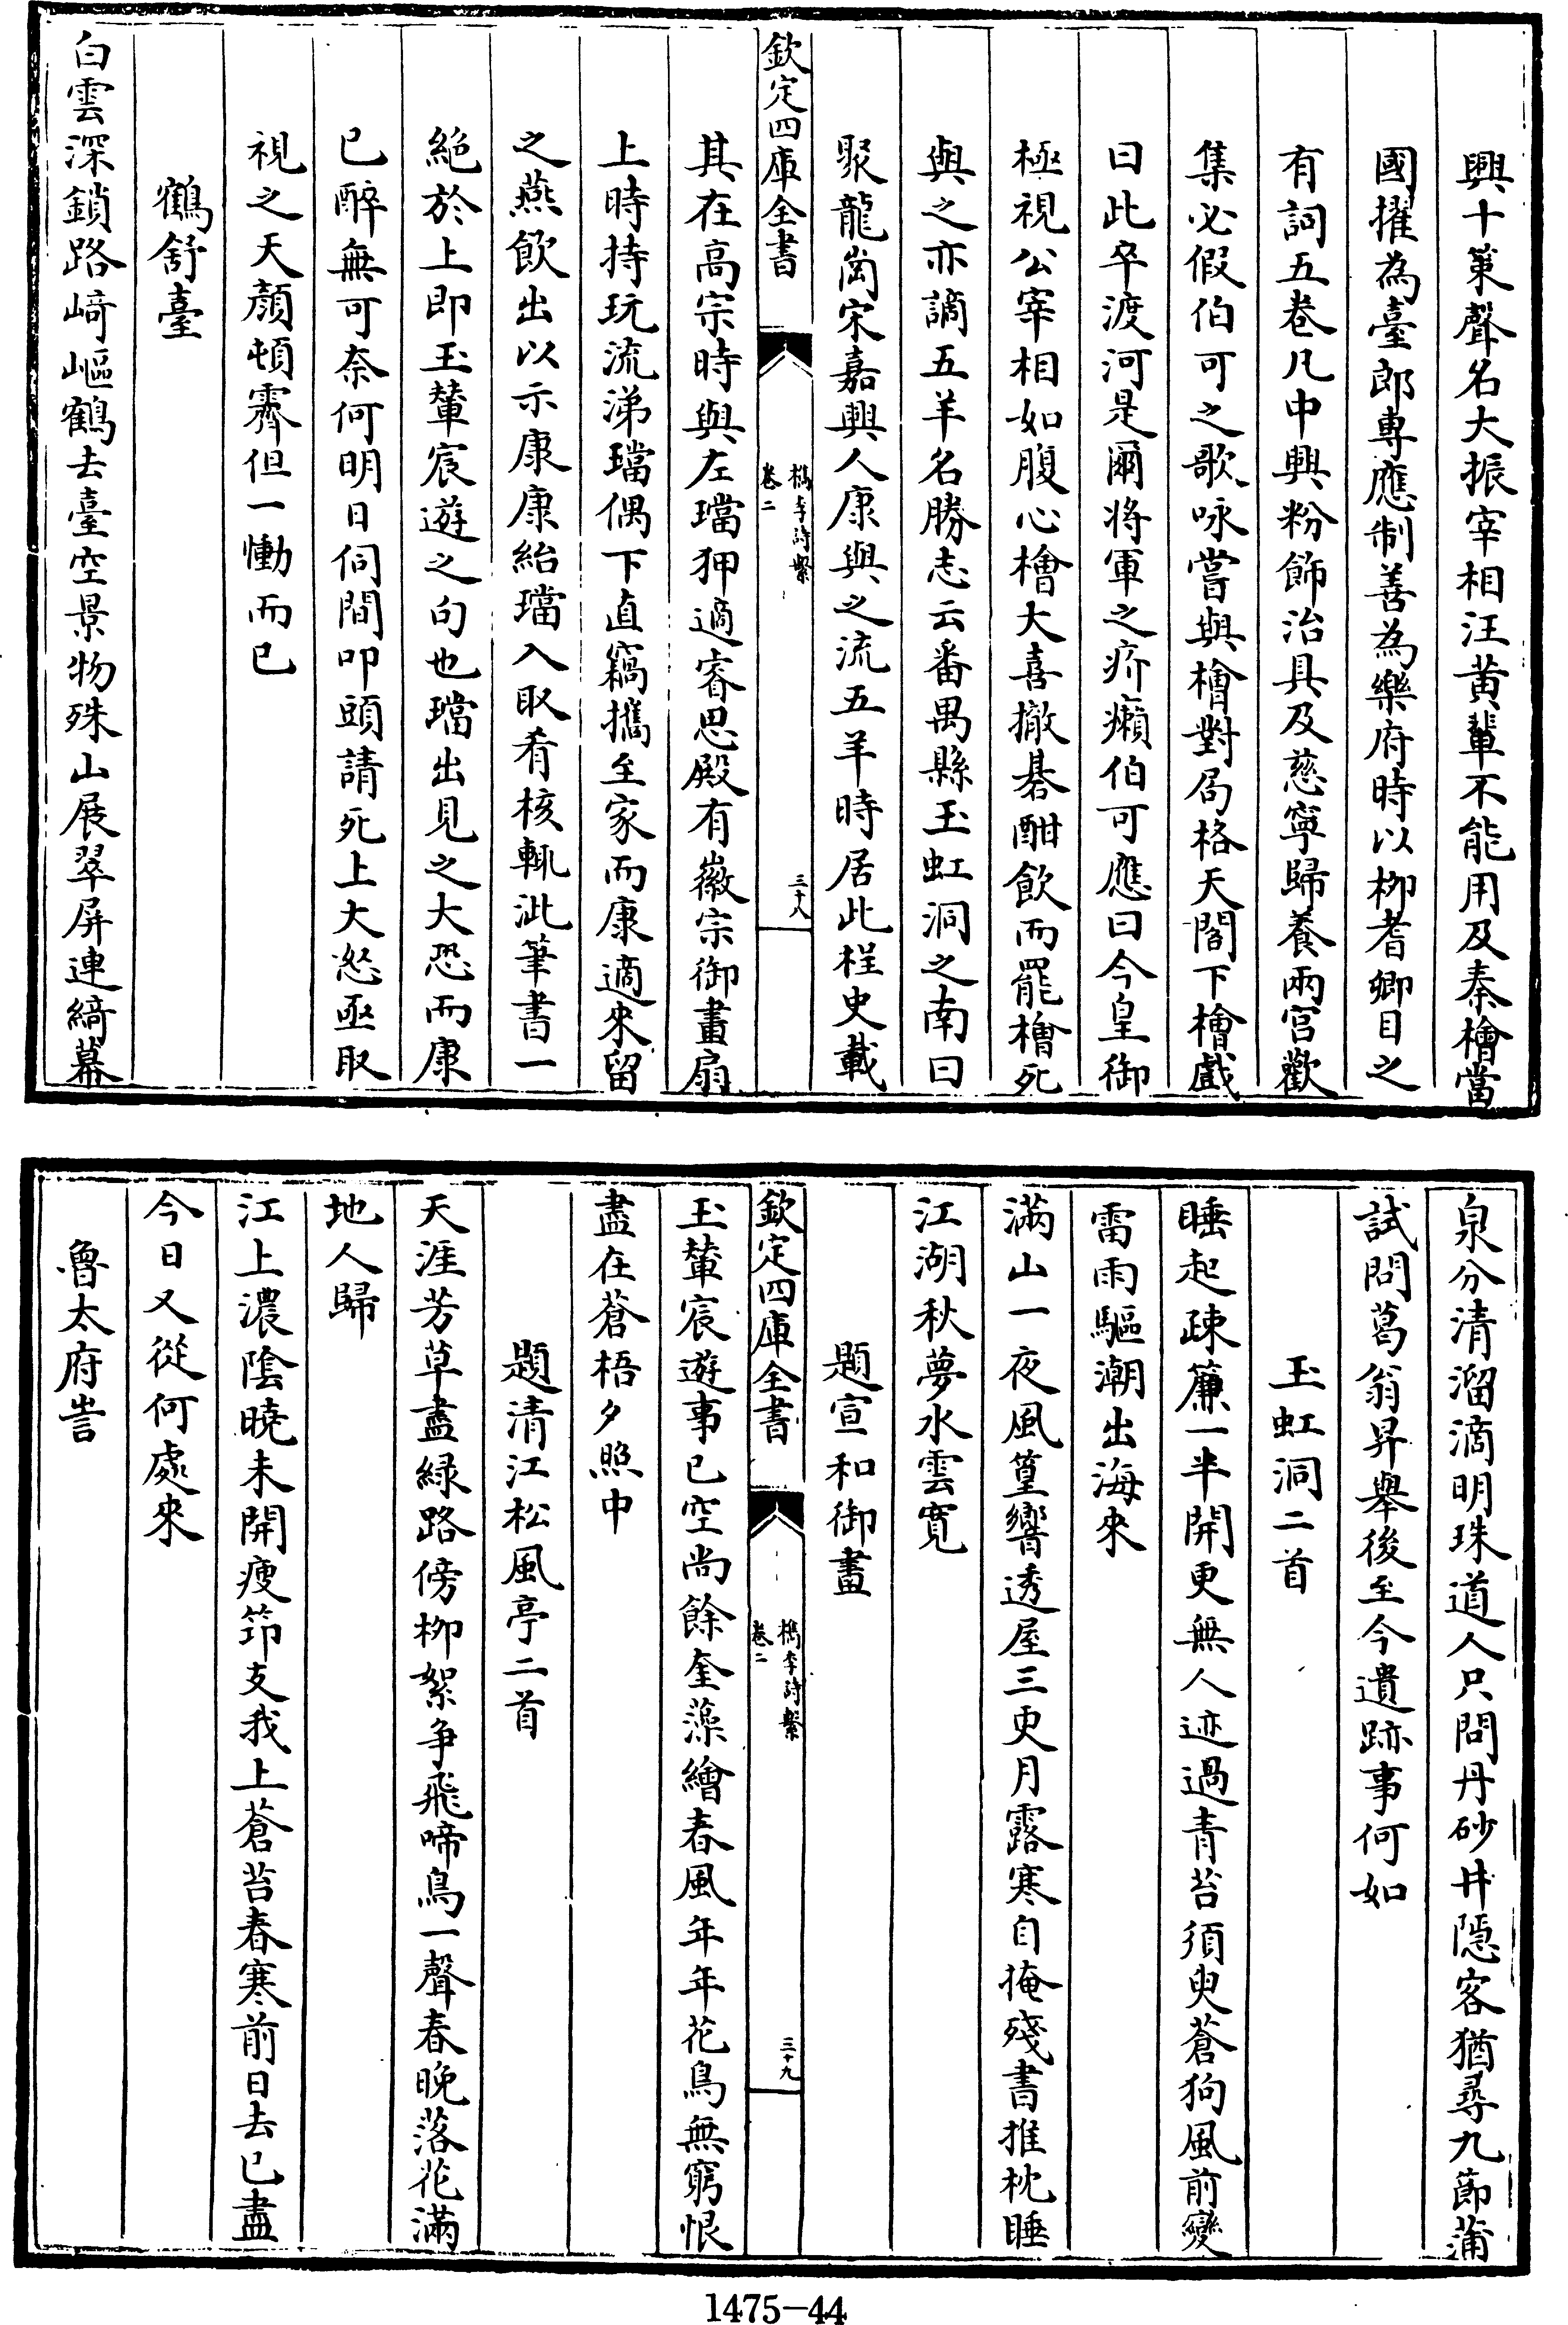 興十策聲名大振宰相汪黄輩不能用及秦檜當
國擢為臺郎專應制善為樂府時以柳耆卿目之
有詞五卷凡中興粉飾治具及慈寧歸養兩宫歡
集必假伯可之歌咏嘗與檜對局格天閣下檜戲
曰此卒渡河是爾將軍之疥癩伯可應曰今皇御
極視公宰相如腹心檜大喜撤碁酣飲而罷檜死
與之亦謫五羊名勝志云番禺縣玉虹洞之南曰
聚龍崗宋嘉興人康與之流五羊時居此桯史載
欽定四庫全書
檇李詩繫
卷二
三十八
其在高宗時與左璫狎適睿思殿有徽宗御畫扇
上時持玩流涕璫偶下直竊攜至家而康適來留
之燕飲出以示康康紿璫入取肴核輒泚筆書一
絶於上即玉輦宸遊之句也璫出見之大恐而康
已醉無可奈何明日伺間叩頭請死上大怒亟取
視之天顔頓霽但一慟而已
鶴舒臺
白雲深鎖路﨑嶇鶴去臺空景物殊山展翠屏連綺幕
泉分清溜滴明珠道人只問丹砂井隱客猶尋九節蒲
試問葛翁昇舉後至今遺跡事何如
玉虹洞二首
睡起疎簾一半開更無人迹過青苔須臾蒼狗風前變
雷雨驅潮出海來
滿山一夜風篁響透屋三更月露寒自掩殘書推枕睡
江湖秋夢水雲寛
題宣和御畫
欽定四庫全書
檇李詩繫
卷二
三十九
玉輦宸遊事已空尚餘奎藻繪春風年年花鳥無窮恨
盡在蒼梧夕照中
題清江松風亭二首
天涯芳草盡緑路傍柳絮争飛啼鳥一聲春晚落花滿
地人歸
江上濃陰曉未開瘦笻支我上蒼苔春寒前日去已盡
今日又從何處來
魯太府訔
1475-44